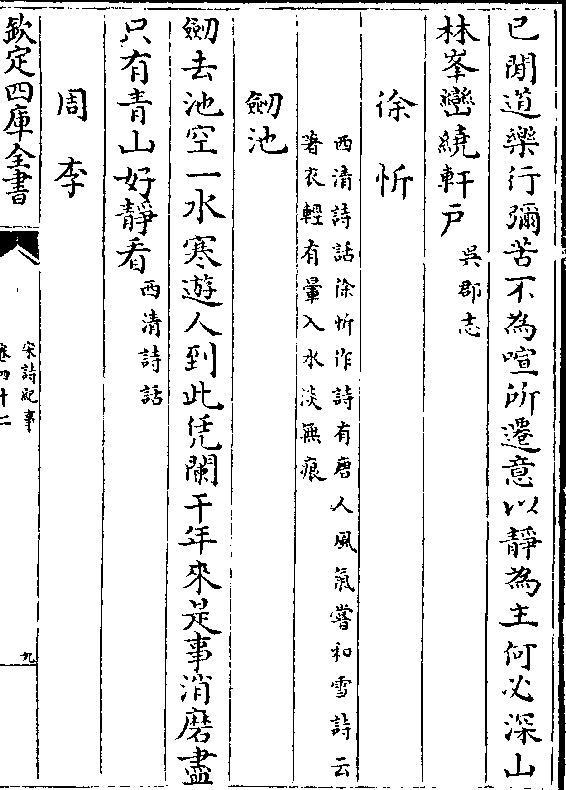 已聞道樂行彌苦不為喧所遷意以靜為主何必深山
林峯巒繞軒戸吳郡志
徐忻
西清詩話徐忻作詩有唐人風氣嘗和雪詩云
著衣輕有暈入水淡無痕
劒池
劒去池空一水寒遊人到此凭闌干年來是事消磨盡
只有青山好靜看西清詩話
周李
欽定四庫全書
宋詩紀事
卷四十二
九